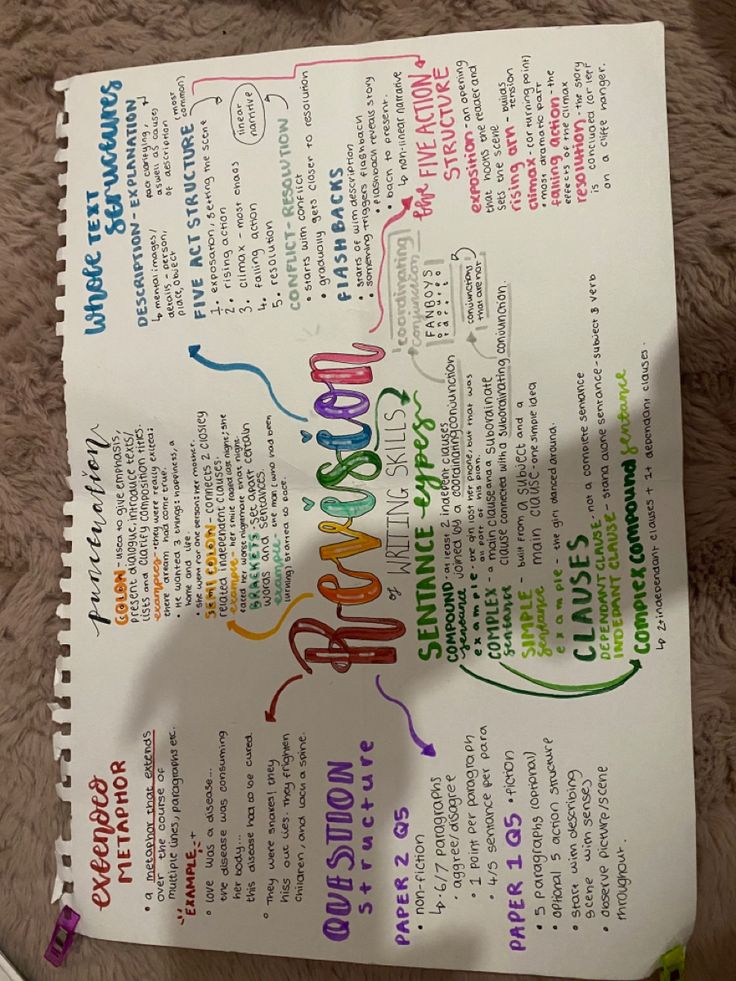 extended
METAPHOR
• a metaphor that extends
over the course of
multiple lines, paragraphs etc.
EXAMPLE
• love was a disease...
the disease was consuming
her body...
this disease had to be cured.
• They were snakes! they
hiss out lies. They frighten
children, and lack a spine.
punctuation
COLON - used to give emphasis,
present dialogue, introduce texts,
lists and clarify composition titles.
examples - they were really excited:
there team had come true.
• He wanted 3 things: happiness, a
home and life.
• she went for one person: her mother.
SEMI COLON - connects 2 closley
related independent clauses.
example - her smile faded last night; she
faced her worst nightmare that night.
BRACKETS - set apart certain
words and sentances.
example - the man (who had been
lurking) started to pace.
WHOLE TEXT
structures
DESCRIPTION - EXPLANATION
↳ mental images/
details - person,
place, object
for clarifying,
aswell as cause
of description (most
common)
FIVE ACT STRUCTURE
1. exposation, setting the scene
2. rising action
3. climax - most chaos
4. falling action
5. resolution
linear
narritive
CONFLICT-RESOLUTION
• starts with conflict
• gradually gets closer to resolution
FLASHBACKS
• starts of with description
• something triggers flashback
• flashback reveals story
• back to present.
↳ non-linear narrative
Revision
of WRITING SKILLS
QUESTION
structure
PAPER 2 Q5
• non-fiction
↳ 6/7 paragraphs
• aggree/disagree
• 1 point per paragraph
• 4/5 sentance per para
PAPER 1 Q5 • fiction
• 5 paragraphs (optional)
• optional 5 action structure
• start with describing
scene with senses
• observe picture/scene
throughout.
SENTANCE types
COMPOUND - at least 2 indepent clauses
sentance joined by a coordinating conjunction
example - the girl lost her phone, but that was
all part of his plan
COMPLEX - a main clause and a subordinate
sentance clause connected with a subordinating conjunction.
SIMPLE - built from a subject and a
sentance main clause - one simple idea
example - the girl danced around.
CLAUSES
DEPENDANT CLAUSE - not a complete sentance
INDEPANT CLAUSE - stand alone sentance - subject & verb
complex compound sentance
↳ 2+ independant clauses + 1+ dependant clauses.
coordinating
conjunction
FANBOYS
conjunctions
that are not
the FIVE ACTION
STRUCTURE
exposition - an opening
that hooks the reader and
sets the scene
rising arn - builds
tension
climax - (or turning point)
• most dramatic part
falling action - the
effects of the climax
resolution - the story
is concluded (or left
on a cliffe hanger.